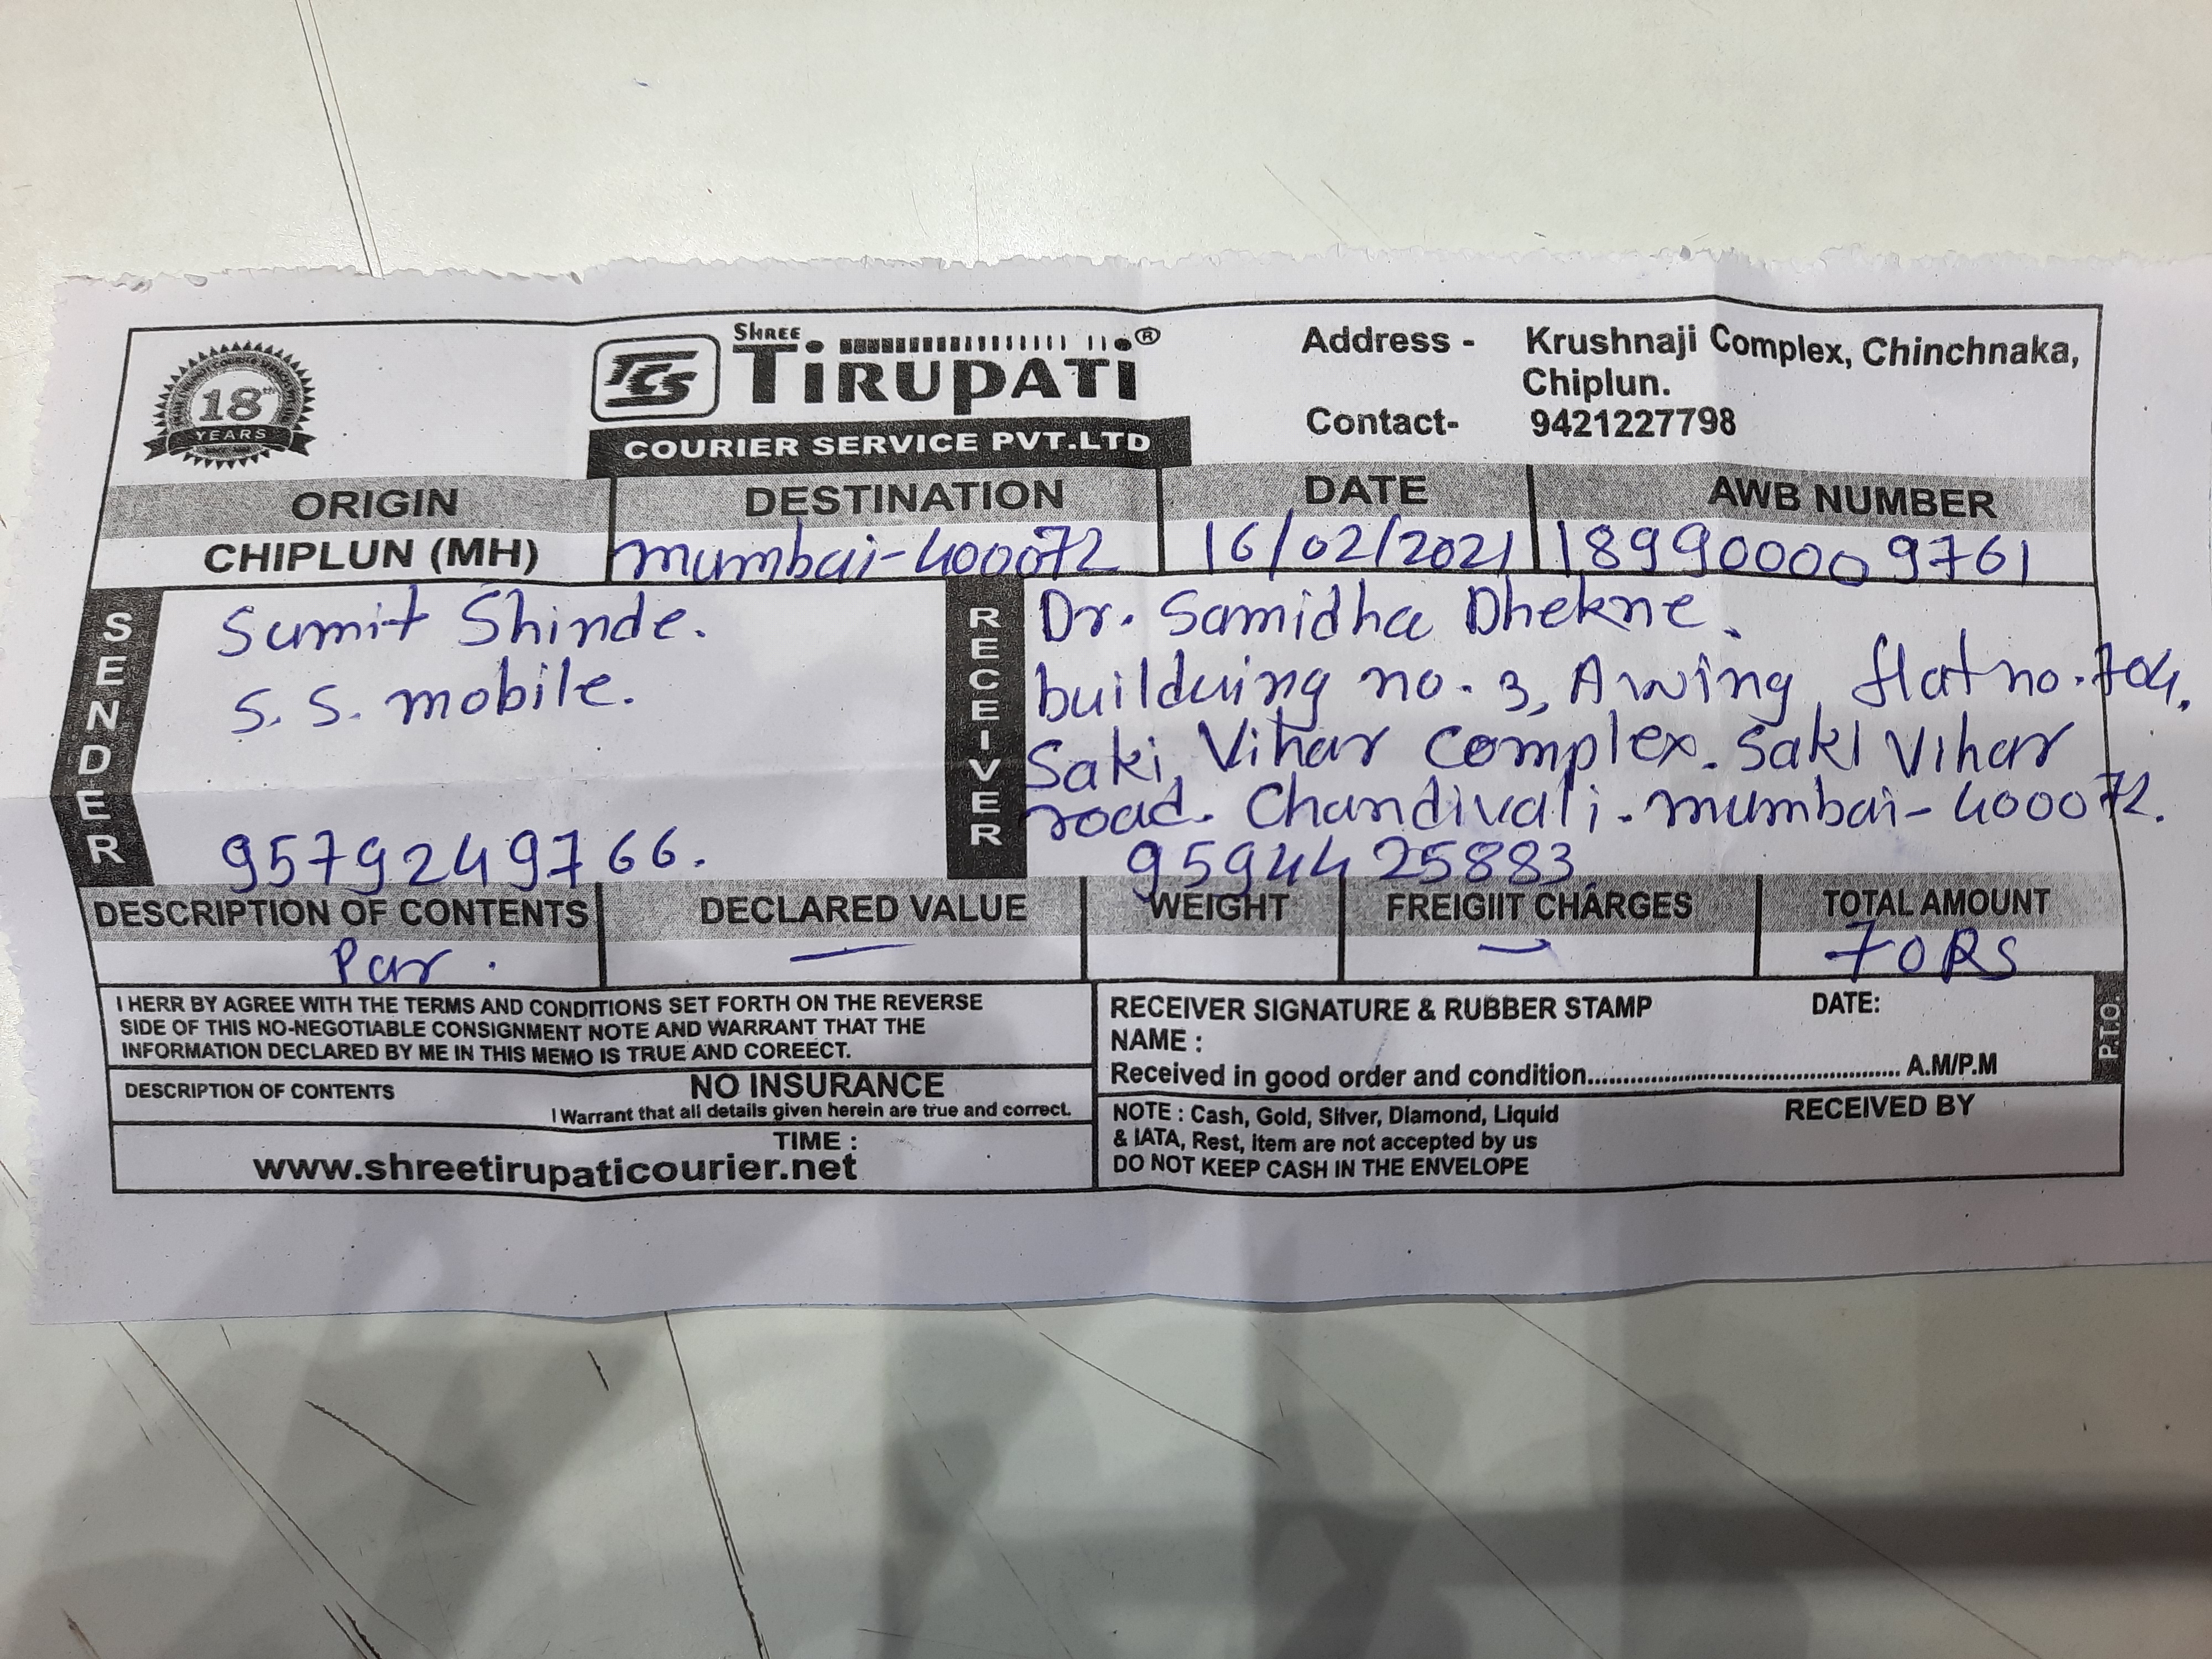 18th
YEARS
SHREE
TIRUPATI®
COURIER SERVICE PVT.LTD
Address - Krushnaji Complex, Chinchnaka,
Chiplun.
Contact- 9421227798
ORIGIN DESTINATION DATE AWB NUMBER
CHIPLUN (MH) mumbai-400072 16/02/2021 189900009761
SENDER
Sumit Shinde.
S. S. mobile.
9579249766.
RECEIVER
Dr. Samidha Dhekne.
building no-3, A wing flat no-704,
Saki Vihar Complex. Saki Vihar
road. Chandivali-mumbai-400072.
9594425883
DESCRIPTION OF CONTENTS DECLARED VALUE WEIGHT FREIGIIT CHARGES TOTAL AMOUNT
Par. — — 70RS
I HERR BY AGREE WITH THE TERMS AND CONDITIONS SET FORTH ON THE REVERSE
SIDE OF THIS NO-NEGOTIABLE CONSIGNMENT NOTE AND WARRANT THAT THE
INFORMATION DECLARED BY ME IN THIS MEMO IS TRUE AND COREECT.
DESCRIPTION OF CONTENTS NO INSURANCE
I Warrant that all details given herein are true and correct.
TIME :
www.shreetirupaticourier.net
RECEIVER SIGNATURE & RUBBER STAMP DATE:
NAME :
Received in good order and condition.......................................... A.M/P.M
NOTE : Cash, Gold, Silver, Diamond, Liquid
& IATA, Rest, item are not accepted by us
DO NOT KEEP CASH IN THE ENVELOPE
RECEIVED BY
P.T.O.